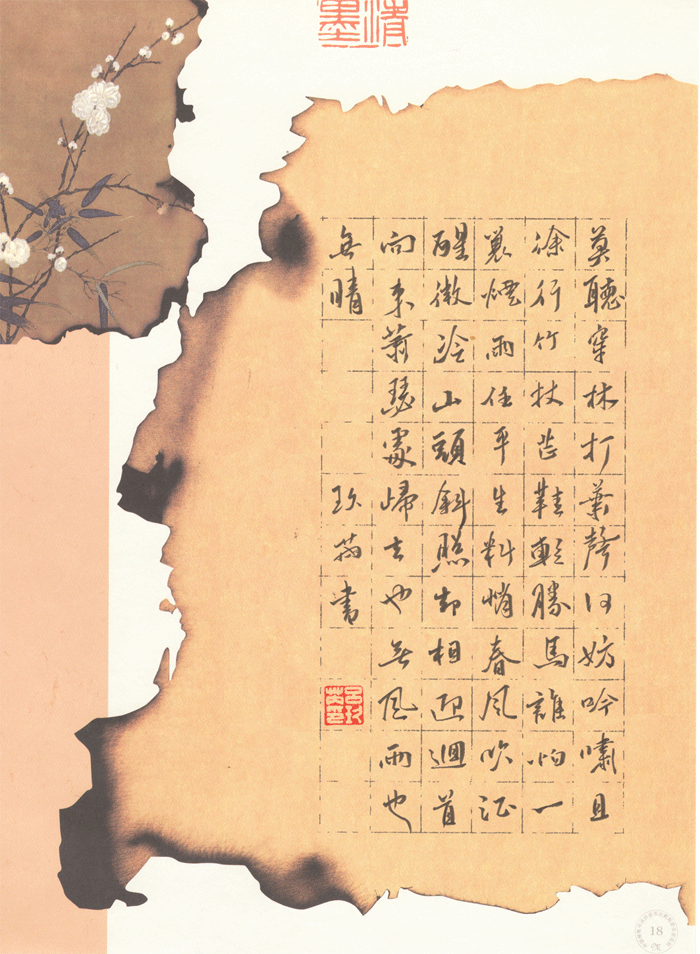 清墨
莫聽穿林打葉聲何妨吟嘯且
徐行竹杖芒鞋輕勝馬誰怕一
蓑煙雨任平生料峭春風吹酒
醒微冷山頭斜照却相迎迴首
向來蕭瑟處歸去也無風雨也
無晴
玖書
18